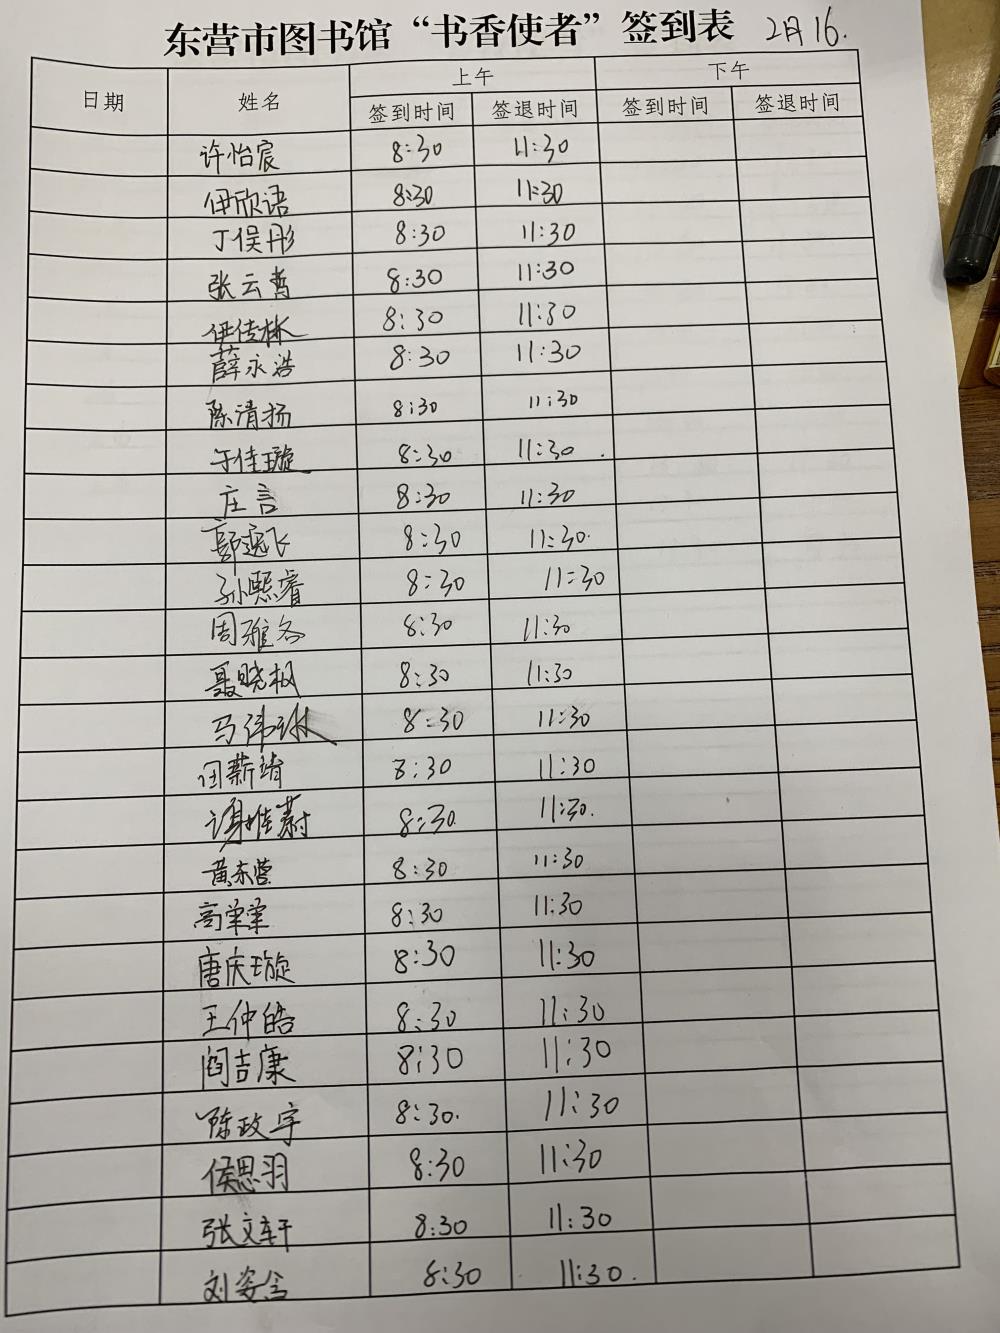 东营市图书馆“书香使者”签到表 2月16.
日期 姓名 上午 下午
签到时间 签退时间 签到时间 签退时间
许怡宸 8:30 11:30
伊欣语 8:30 11:30
丁俣彤 8:30 11:30
张云哲 8:30 11:30
伊佳彬 8:30 11:30
薛永浩 8:30 11:30
陈清扬 8:30 11:30
于佳璇 8:30 11:30
庄言 8:30 11:30
郭逸飞 8:30 11:30
孙熙睿 8:30 11:30
周雅名 8:30 11:30
聂晓枫 8:30 11:30
马伟琳 8:30 11:30
闫薪靖 8:30 11:30
谭雅蔚 8:30 11:30
黄东营 8:30 11:30
高 8:30 11:30
唐庆璇 8:30 11:30
王仲皓 8:30 11:30
阎吉康 8:30 11:30
陈政宇 8:30 11:30
侯思羽 8:30 11:30
张文轩 8:30 11:30
刘姿含 8:30 11:30